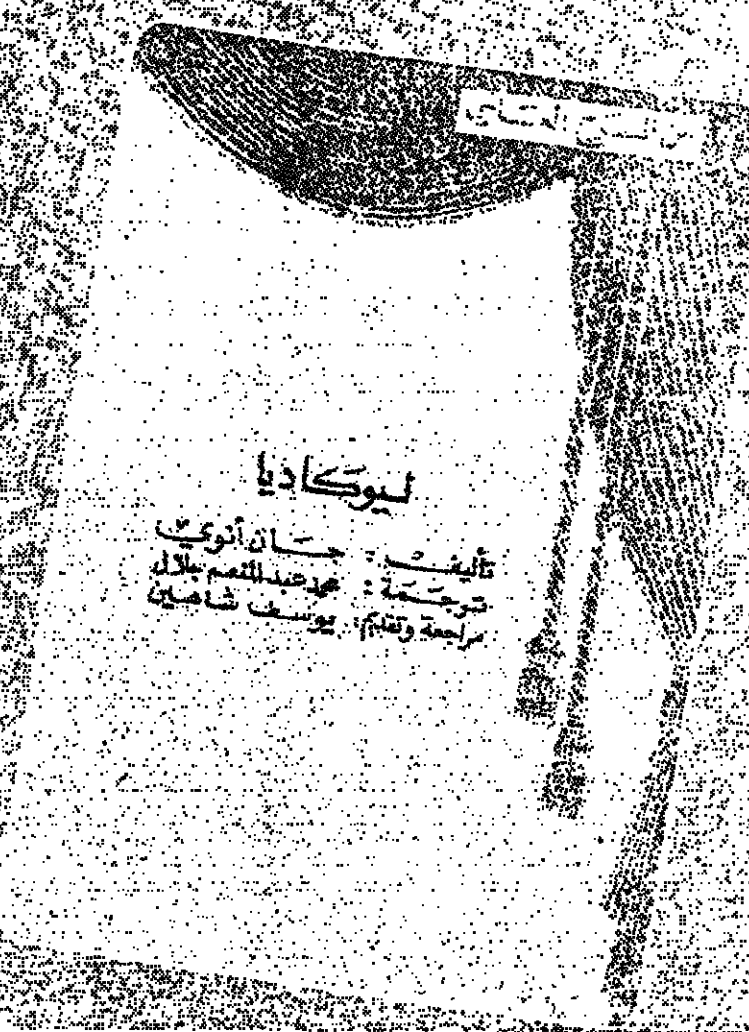 من المسرح العالمى
ليوكاديا
تأليف : جان أنوي
ترجمة : محمد عبد المنعم جلال
مراجعة وتقديم : يوسف شاهين